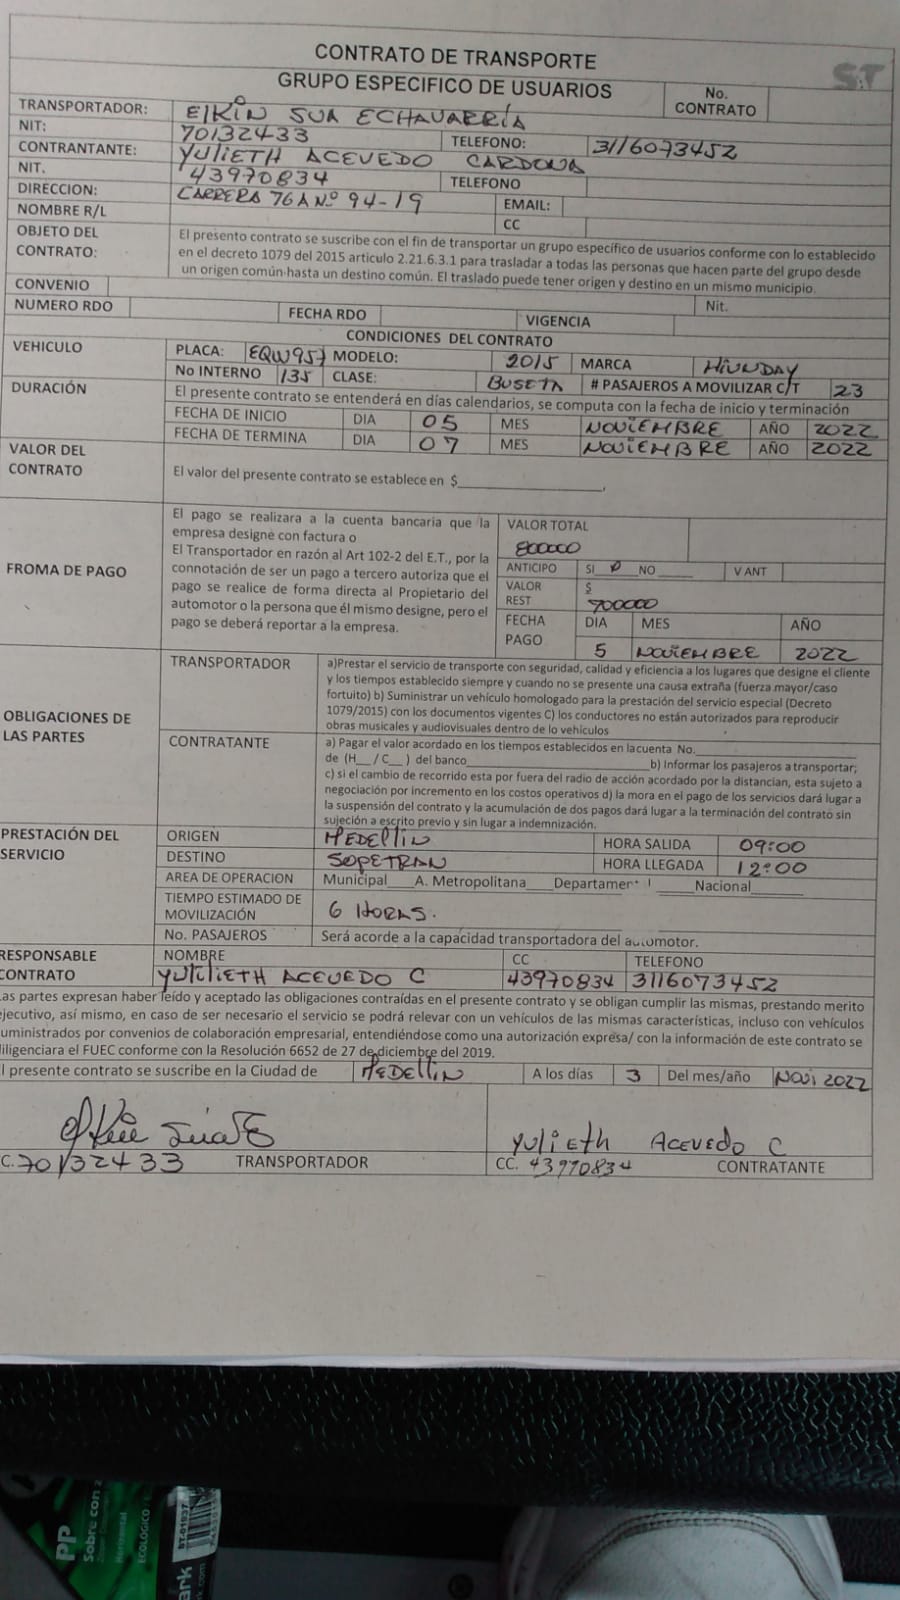 CONTRATO DE TRANSPORTE
GRUPO ESPECIFICO DE USUARIOS
No. CONTRATO
ST
TRANSPORTADOR: ElKiN SUA ECHAVARRÍA
NIT: 70132433 TELEFONO: 3116073452
CONTRANTANTE: YULIETH ACEVEDO CARDONA
NIT. 43970834 TELEFONO
DIRECCION: CARRERA 76A Nº 94-19 EMAIL:
NOMBRE R/L CC
OBJETO DEL CONTRATO: El presento contrato se suscribe con el fin de transportar un grupo específico de usuarios conforme con lo establecido
en el decreto 1079 del 2015 articulo 2.21.6.3.1 para trasladar a todas las personas que hacen parte del grupo desde
un origen común hasta un destino común. El traslado puede tener origen y destino en un mismo municipio.
CONVENIO Nit.
NUMERO RDO FECHA RDO VIGENCIA
CONDICIONES DEL CONTRATO
VEHICULO PLACA: EQW957 MODELO: 2015 MARCA HIUNDAY
No INTERNO 135 CLASE: BUSETA # PASAJEROS A MOVILIZAR C/T 23
DURACIÓN El presente contrato se entenderá en días calendarios, se computa con la fecha de inicio y terminación
FECHA DE INICIO DIA 05 MES NOVIEMBRE AÑO 2022
FECHA DE TERMINA DIA 07 MES NOVIEMBRE AÑO 2022
VALOR DEL CONTRATO El valor del presente contrato se establece en $
FROMA DE PAGO
El pago se realizara a la cuenta bancaria que la
empresa designe con factura o
El Transportador en razón al Art 102-2 del E.T., por la
connotación de ser un pago a tercero autoriza que el
pago se realice de forma directa al Propietario del
automotor o la persona que él mismo designe, pero el
pago se deberá reportar a la empresa.
VALOR TOTAL
800000
ANTICIPO SI NO V ANT
VALOR REST $ 700000
FECHA PAGO DIA MES AÑO
5 NOVIEMBRE 2022
OBLIGACIONES DE LAS PARTES
TRANSPORTADOR a)Prestar el servicio de transporte con seguridad, calidad y eficiencia a los lugares que designe el cliente
y los tiempos establecido siempre y cuando no se presente una causa extraña (fuerza mayor/caso
fortuito) b) Suministrar un vehículo homologado para la prestación del servicio especial (Decreto
1079/2015) con los documentos vigentes C) los conductores no están autorizados para reproducir
obras musicales y audiovisuales dentro de lo vehículos
CONTRATANTE a) Pagar el valor acordado en los tiempos establecidos en la cuenta No.
de (H__ / C__ ) del banco b) Informar los pasajeros a transportar;
c) si el cambio de recorrido esta por fuera del radio de acción acordado por la distancian, esta sujeto a
negociación por incremento en los costos operativos d) la mora en el pago de los servicios dará lugar a
la suspensión del contrato y la acumulación de dos pagos dará lugar a la terminación del contrato sin
sujeción a escrito previo y sin lugar a indemnización.
PRESTACIÓN DEL SERVICIO
ORIGEN MEDEllIN HORA SALIDA 09:00
DESTINO SOPETRAN HORA LLEGADA 12:00
AREA DE OPERACION Municipal____A. Metropolitana____Departament ____Nacional____
TIEMPO ESTIMADO DE MOVILIZACIÓN 6 HORAS.
No. PASAJEROS Será acorde a la capacidad transportadora del automotor.
RESPONSABLE CONTRATO NOMBRE CC TELEFONO
YULIETH ACEVEDO C 43970834 3116073452
as partes expresan haber leído y aceptado las obligaciones contraídas en el presente contrato y se obligan cumplir las mismas, prestando merito
ejecutivo, así mismo, en caso de ser necesario el servicio se podrá relevar con un vehículos de las mismas características, incluso con vehículos
uministrados por convenios de colaboración empresarial, entendiéndose como una autorización expresa/ con la información de este contrato se
iligenciara el FUEC conforme con la Resolución 6652 de 27 de diciembre del 2019.
l presente contrato se suscribe en la Ciudad de MEDEllIN A los días 3 Del mes/año NOVI 2022
Yulieth ACEVEDO C
C. 70132433 TRANSPORTADOR CC. 43970834 CONTRATANTE
PP
Sobre con
Horizontal
ECOLOGICO
ST-01937
ark